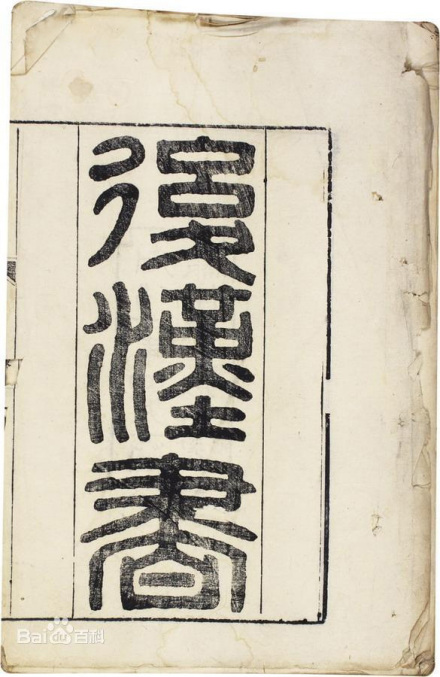 後漢書
Baidu百科